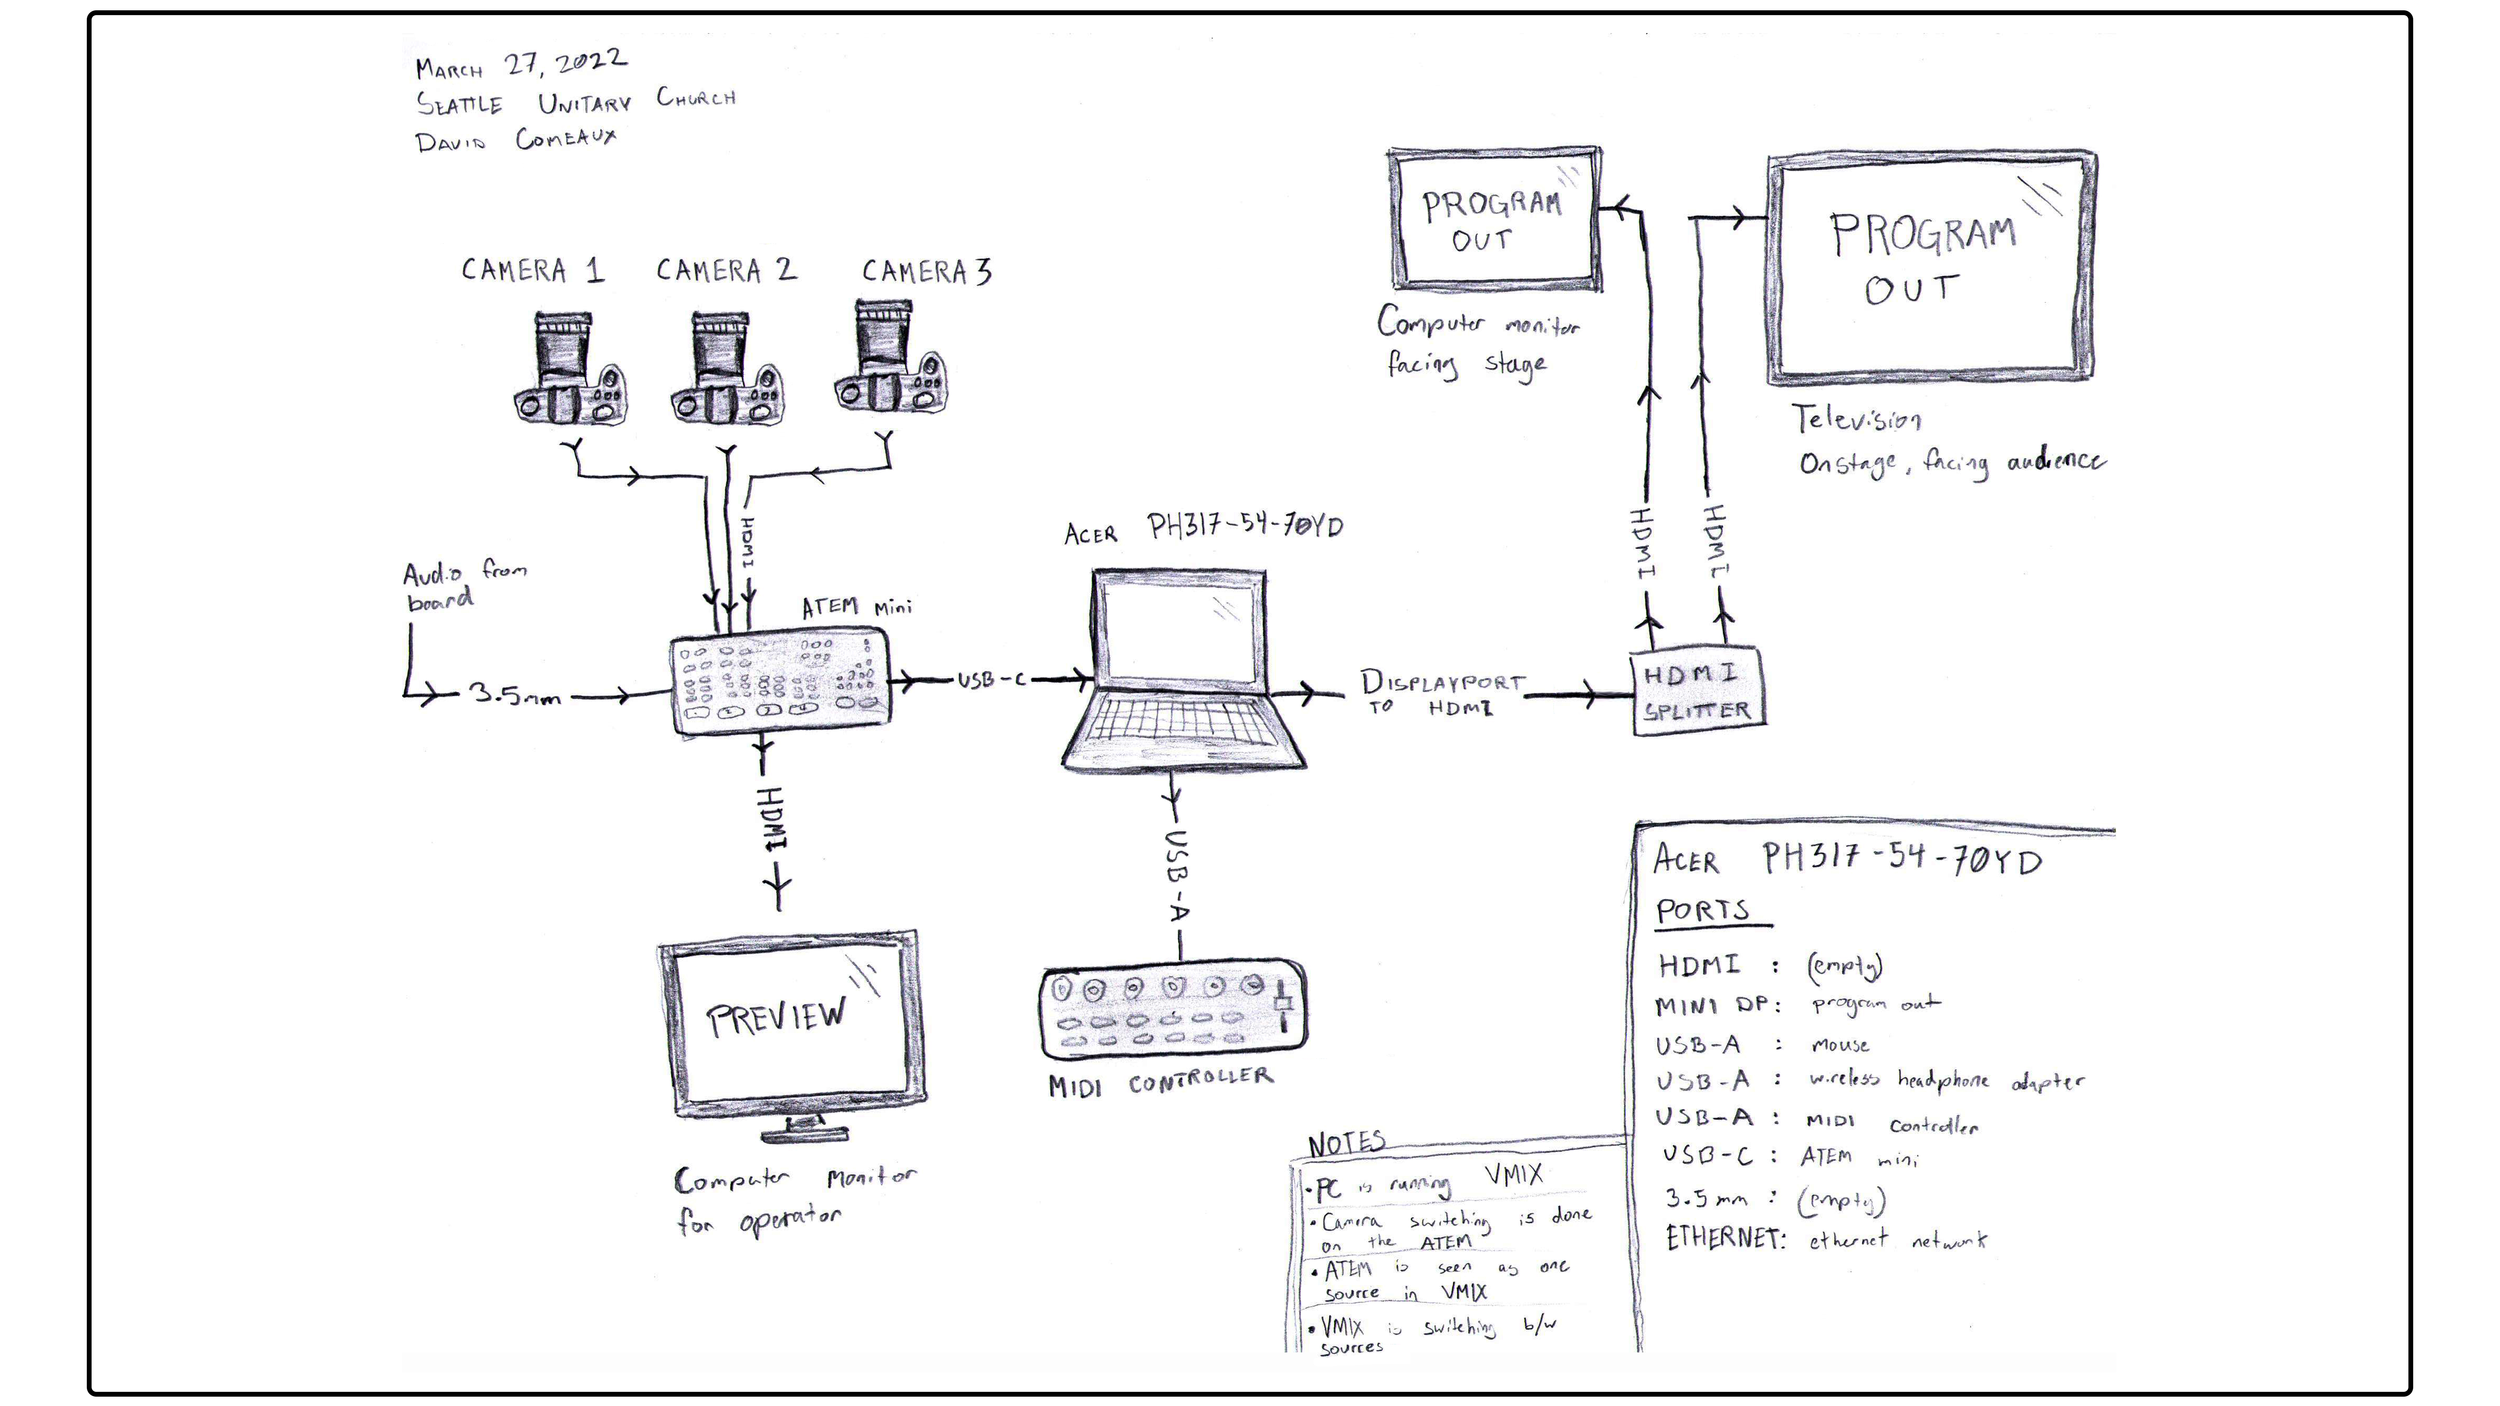 MARCH 27, 2022
SEATTLE UNITARY CHURCH
DAVID COMEAUX
CAMERA 1
CAMERA 2
CAMERA 3
HDMI
Audio from
board
3.5mm
ATEM Mini
USB-C
ACER PH317-54-70YD
DISPLAYPORT
TO HDMI
HDMI
SPLITTER
HDMI
HDMI
PROGRAM
OUT
Computer monitor
facing stage
PROGRAM
OUT
Television
Onstage, facing audience
HDMI
PREVIEW
Computer Monitor
for operator
USB-A
MIDI CONTROLLER
NOTES
• PC is running VMIX
• Camera switching is done
on the ATEM
• ATEM is seen as one
source in VMIX
• VMIX is switching b/w
sources
ACER PH317-54-70YD
PORTS
HDMI : (empty)
MINI DP: program out
USB-A : mouse
USB-A : wireless headphone adapter
USB-A : MIDI controller
USB-C : ATEM mini
3.5mm : (empty)
ETHERNET: ethernet network